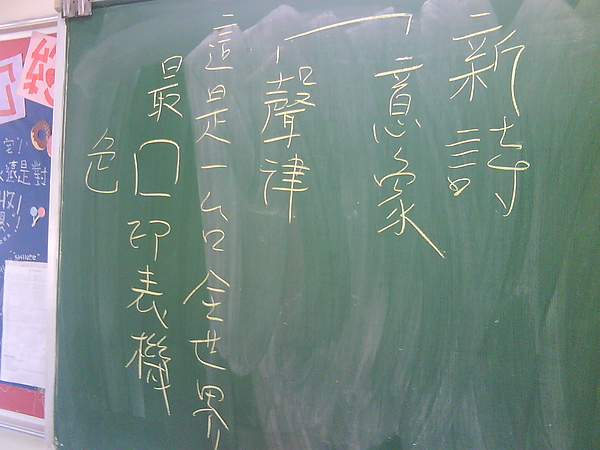 新詩
意象
聲律
這是一台全世界
最□印表機
色
遠是對
"SHINee"